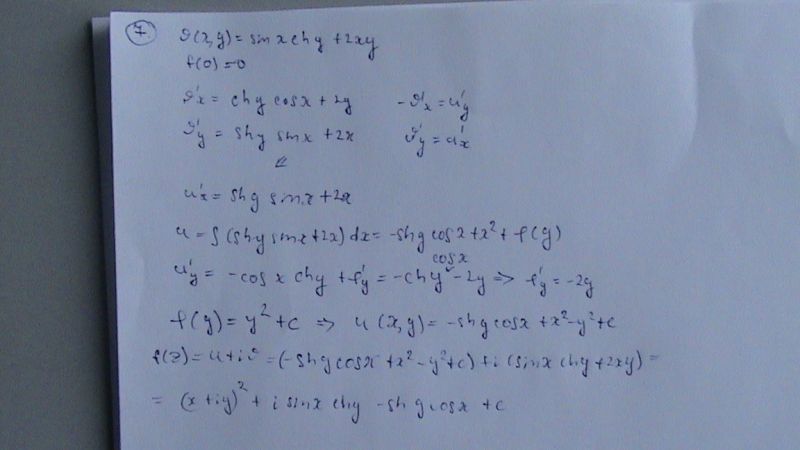 7. ϑ(x,y) = sin x chy + 2xy
f(0) = 0
ϑ'x = chy cosx + 2y -ϑ'x = u'y
ϑ'y = shy sinx + 2x ϑ'y = u'x
⇐
u'x = shy sinx + 2x
u = ∫(shy sinx + 2x)dx = -shy cosx + x² + φ(y)
u'y = -cosx chy + φ'y = -chy cosx - 2y ⇒ φ'y = -2y
φ(y) = y² + c ⇒ u(x,y) = -shy cosx + x² - y² + c
f(z) = u + iϑ = (-shy cosx + x² - y² + c) + i(sinx chy + 2xy) =
= (x + iy)² + i sinx chy - shy cosx + c